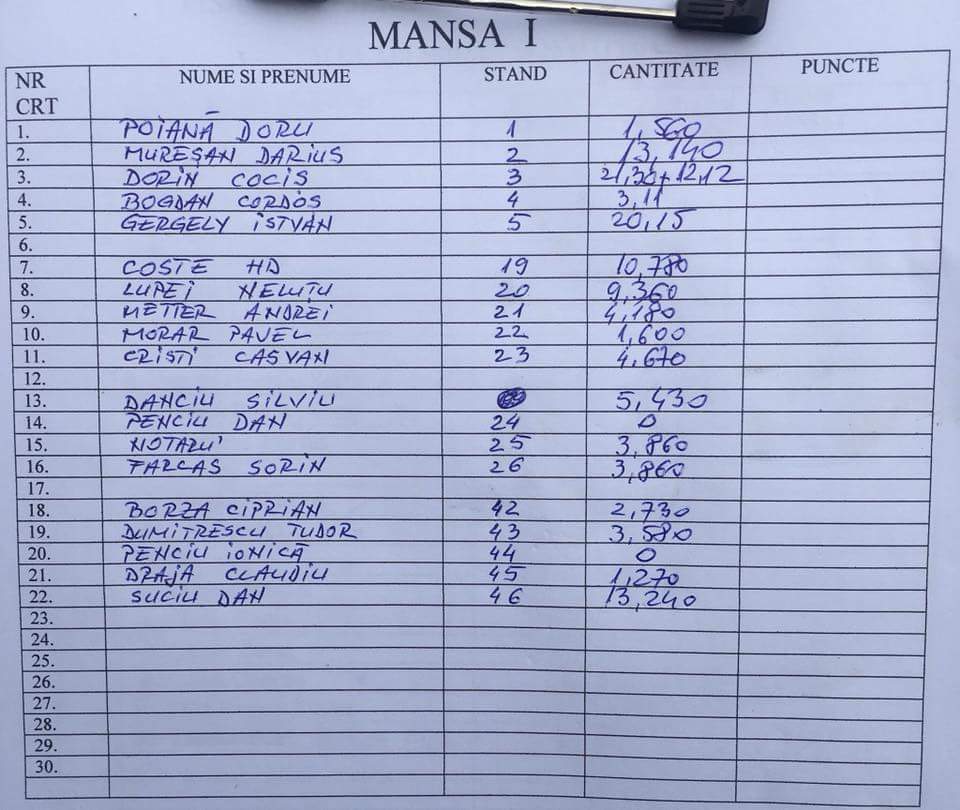 MANSA I
NR CRT NUME SI PRENUME STAND CANTITATE PUNCTE
1. POIANĂ DORU 1 1,560
2. MUREȘAN DARIUS 2 13,140
3. DORIN COCIS 3 21,30+12,12
4. BOGDAN CORDOS 4 3,11
5. GERGELY ISTVAN 5 20,15
6.
7. COSTE HD 19 10,780
8. LUPEI NELUȚU 20 9,360
9. METTER ANDREI 21 4,180
10. MORAR PAVEL 22 1,600
11. CRISTI CASVAN 23 4,670
12.
13. DANCIU SILVIU 5,430
14. PENCIU DAN 24 0
15. NOTARU' 25 3,860
16. FARCAS SORIN 26 3,860
17.
18. BORZA CIPRIAN 42 2,730
19. DUMITRESCU TUDOR 43 3,580
20. PENCIU IONICĂ 44 0
21. DRAJA CLAUDIU 45 1,270
22. SUCIU DAN 46 13,240
23.
24.
25.
26.
27.
28.
29.
30.